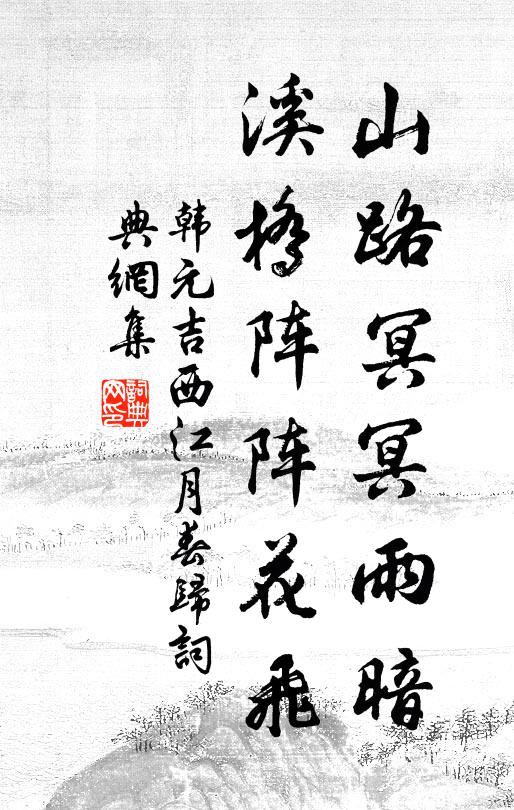 山路冥冥雨暗
溪橋阵阵花飛
韩元吉西江月春歸詞
典網集
詞典网印